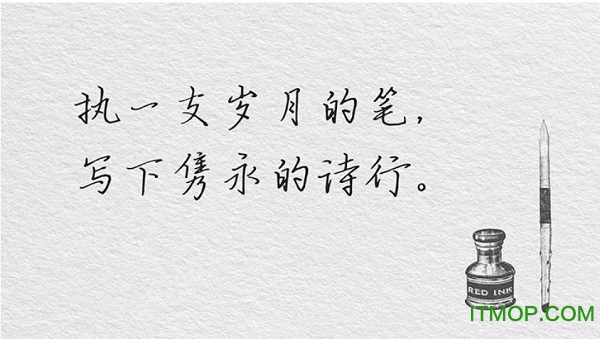 执一支岁月的笔，
写下隽永的诗行。
RED INK
ITMOP.COM